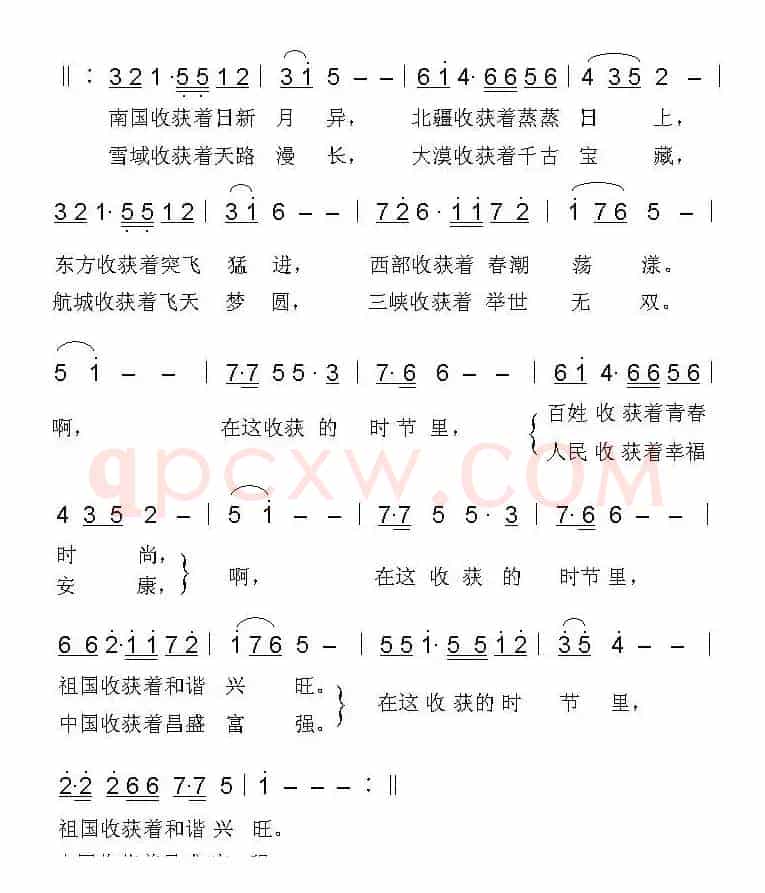 ‖: 3 2 1· 5 5 1 2 | 3 1 5 - - | 6 1 4· 6 6 5 6 | 4 3 5 2 - |
南国收获着日新 月 异， 北疆收获着蒸蒸 日 上，
雪域收获着天路 漫 长， 大漠收获着千古 宝 藏，
3 2 1· 5 5 1 2 | 3 1 6 - - | 7 2 6· 1 1 7 2 | 1 7 6 5 - |
东方收获着突飞 猛 进， 西部收获着 春潮 荡 漾。
航城收获着飞天 梦 圆， 三峡收获着 举世 无 双。
5 1 - - | 7·7 5 5·3 | 7·6 6 - - | 6 1 4·6 6 5 6 |
啊， 在这收获 的 时 节 里， 百姓 收 获着青春
人民 收 获着幸福
qpcxw.COM
4 3 5 2 - | 5 1 - - | 7·7 5 5·3 | 7·6 6 - - |
时 尚，
安 康， 啊， 在这 收 获 的 时节 里，
6 6 2·1 1 7 2 | 1 7 6 5 - | 5 5 1·5 5 1 2 | 3 5 4 - - |
祖国收获着和谐 兴 旺。 在这 收 获的 时 节 里，
中国收获着昌盛 富 强。
2·2 2 6 6 7·7 5 | 1 - - - :‖
祖国收获着和谐 兴 旺。